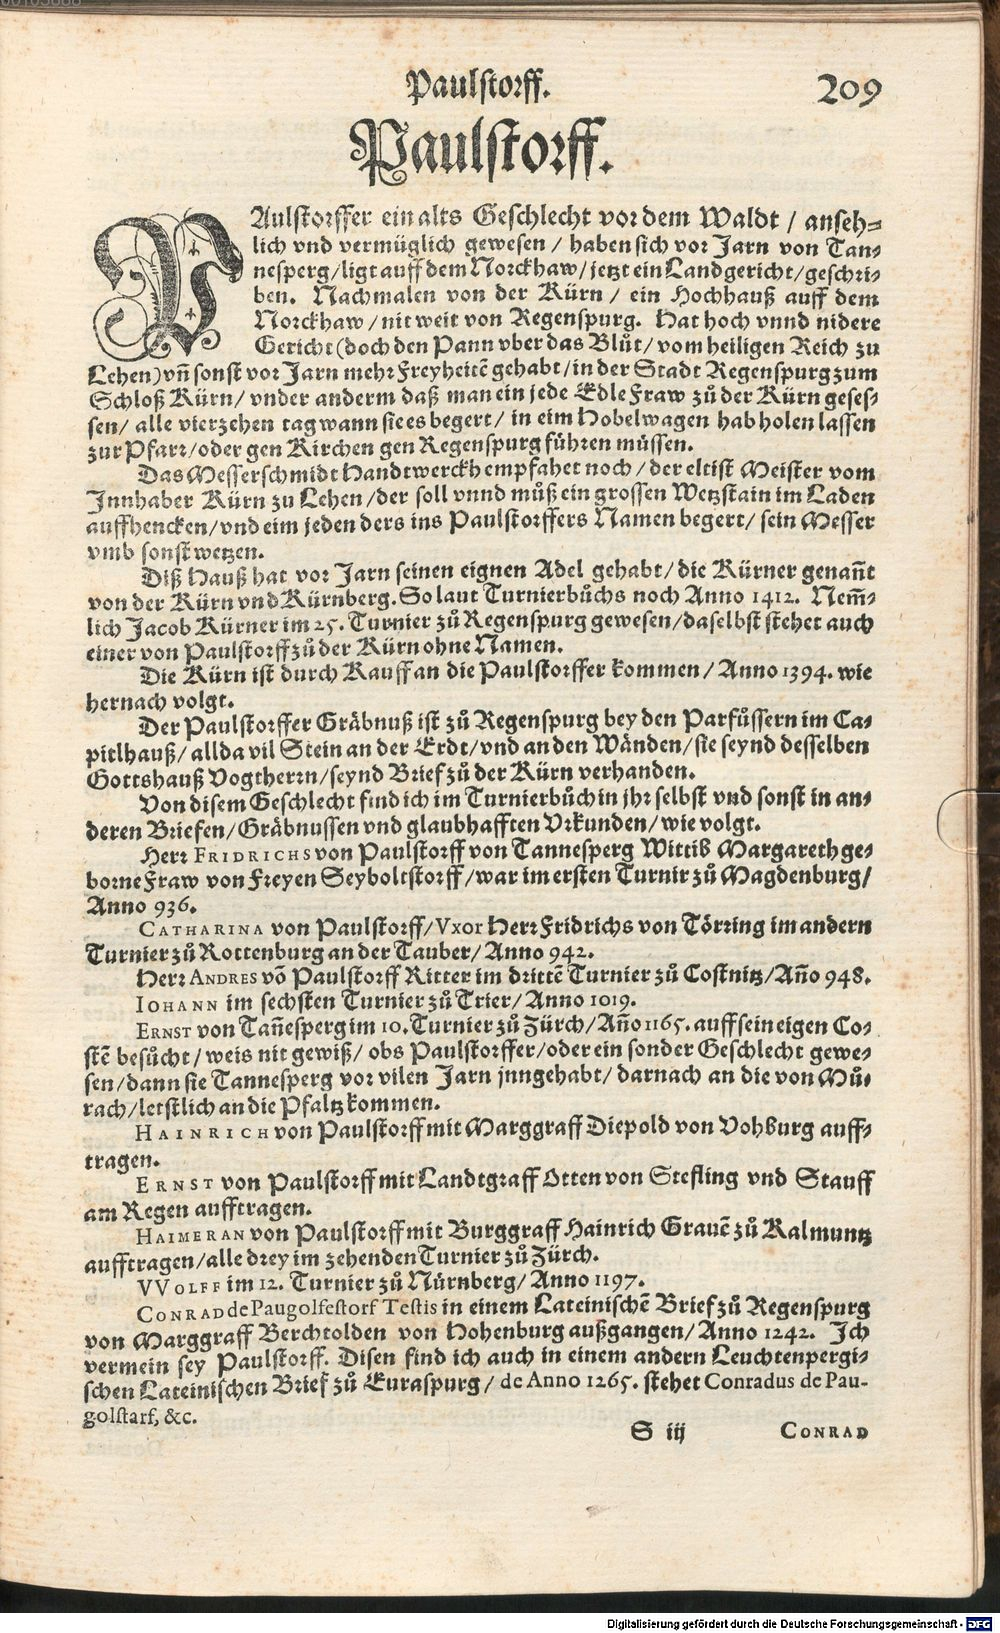 Paulstorff. 209
Paulstorff.
PAulstorffer ein alts Geschlecht vor dem Waldt / anseh-
lich vnd vermüglich gewesen / haben sich vor Jarn von Tan-
nesperg / ligt auff dem Norckhaw / jetzt ein Landgericht / geschri-
ben. Nachmalen von der Kürn / ein Hochhauß auff dem
Norckhaw / nit weit von Regenspurg. Hat hoch vnnd nidere
Gericht (doch den Pann vber das Blůt / vom heiligen Reich zu
Lehen) vn̄ sonst vor Jarn mehr Freyheitē gehabt / in der Stadt Regenspurg zum
Schloß Kürn / vnder anderm daß man ein jede Edle Fraw zů der Kürn geses-
sen / alle vierzehen tag wann sie es begert / in eim Hobelwagen hab holen lassen
zur Pfarr / oder gen Kirchen gen Regenspurg führen müssen.
Das Messerschmidt Handtwerckh empfahet noch / der eltist Meister vom
Innhaber Kürn zu Lehen / der soll vnnd můß ein grossen Wetzstain im Laden
auffhencken / vnd eim jeden ders ins Paulstorffers Namen begert / sein Messer
vmb sonst wetzen.
Diß Hauß hat vor Jarn seinen eignen Adel gehabt / die Kürner genan̄t
von der Kürn vnd Kürnberg. So laut Turnierbůchs noch Anno 1412. Nem̄-
lich Jacob Kürner im 25. Turnier zů Regenspurg gewesen / daselbst stehet auch
einer von Paulstorff zů der Kürn ohne Namen.
Die Kürn ist durch Kauff an die Paulstorffer kommen / Anno 1394. wie
hernach volgt.
Der Paulstorffer Gräbnuß ist zů Regenspurg bey den Parfůssern im Ca-
pitlhauß / allda vil Stein an der Erdt / vnd an den Wänden / sie seynd desselben
Gottshauß Vogtherrn / seynd Brief zů der Kürn verhanden.
Von disem Geschlecht find ich im Turnierbůch in jhr selbst vnd sonst in an-
deren Briefen / Gräbnussen vnd glaubhafften Vrkunden / wie volgt.
Herr FRIDRICHS von Paulstorff von Tannesperg Wittib Margareth ge-
borne Fraw von Freyen Seyboltstorff / war im ersten Turnir zů Magdenburg /
Anno 936.
CATHARINA von Paulstorff / Vxor Herr Fridrichs von Törring im andern
Turnier zů Rottenburg an der Tauber / Anno 942.
Herr ANDRES vō Paulstorff Ritter im drittē Turnier zů Costnitz / An̄o 948.
IOHANN im sechsten Turnier zů Trier / Anno 1019.
ERNST von Tan̄esperg im 10. Turnier zů Zürch / An̄o 1165. auff sein eigen Co-
stē besůcht / weis nit gewiß / obs Paulstorffer / oder ein sonder Geschlecht gewe-
sen / dann sie Tannesperg vor vilen Jarn jnngehabt / darnach an die von Mů-
rach / letstlich an die Pfaltz kommen.
HAINRICH von Paulstorff mit Marggraff Diepold von Vohburg auff-
tragen.
ERNST von Paulstorff mit Landtgraff Otten von Stefling vnd Stauff
am Regen aufftragen.
HAIMERAN von Paulstorff mit Burggraff Hainrich Grauē zů Kalmuntz
aufftragen / alle drey im zehenden Turnier zů Zürch.
VVOLFF im 12. Turnier zů Nürnberg / Anno 1197.
CONRAD de Paugolfestorf Testis in einem Lateinischē Brief zů Regenspurg
von Marggraff Berchtolden von Hohenburg außgangen / Anno 1242. Ich
vermein sey Paulstorff. Disen find ich auch in einem andern Leuchtenpergi-
schen Lateinischen Brief zů Euraspurg / de Anno 1265. stehet Conradus de Pau-
golstarf, &c.
S iij CONRAD
Digitalisierung gefördert durch die Deutsche Forschungsgemeinschaft - DFG